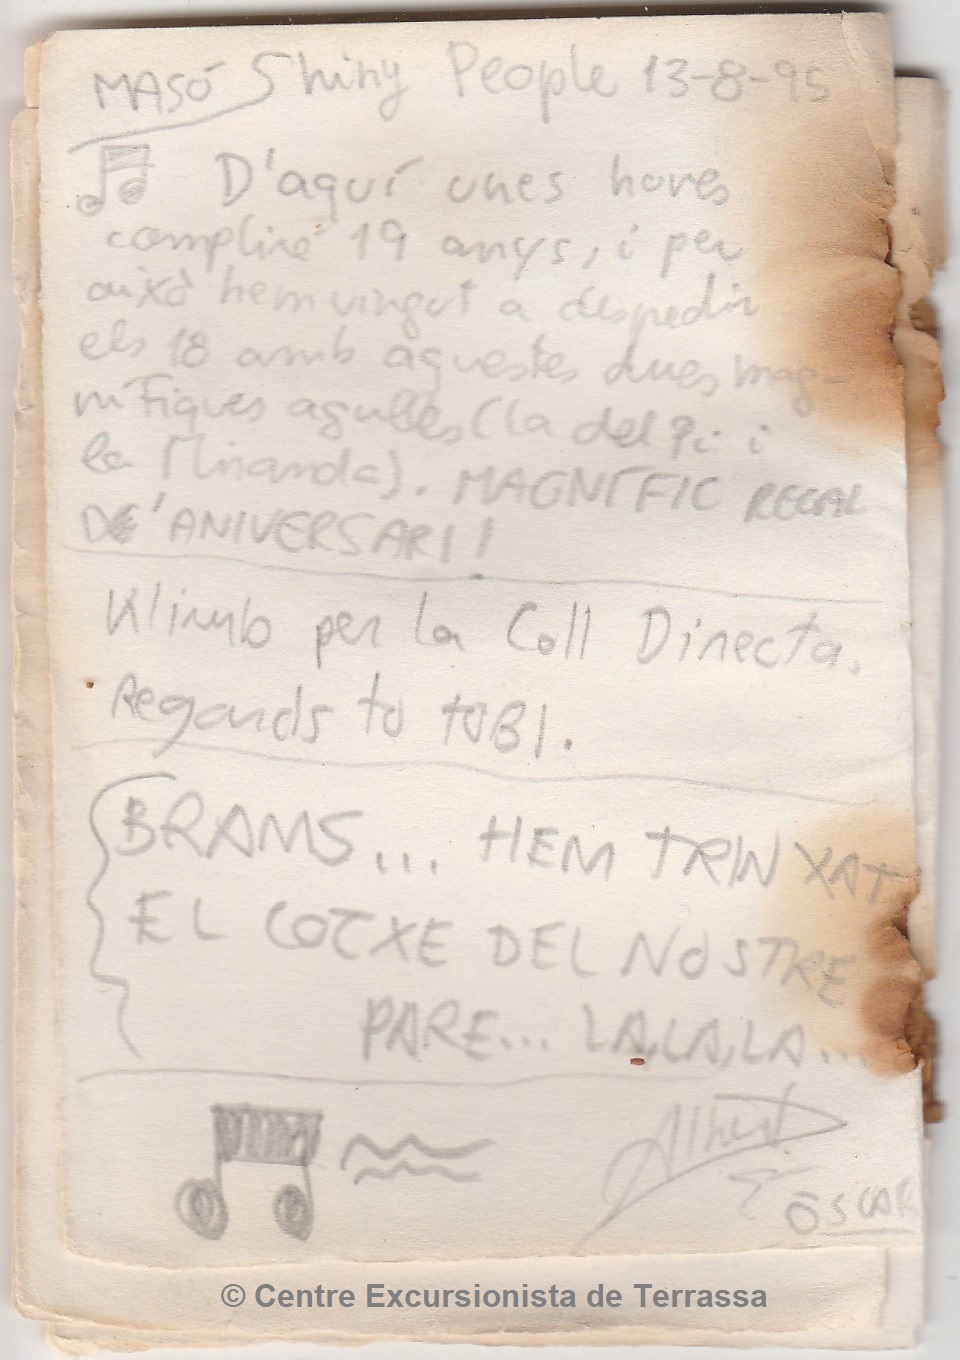 MASÓ Shiny People 13-8-95
D'aquí unes hores
compliré 19 anys, i per
això hem vingut a despedir
els 18 amb aquestes dues mag-
nífiques agulles (la del Pi i
la Miranda). MAGNÍFIC REGAL
D'ANIVERSARI!
Klimb per la Coll Directa.
Regards to TOBI.
BRAMS... HEM TRINXAT
EL COTXE DEL NOSTRE
PARE... LA, LA, LA...
Albert
ÒSCAR
© Centre Excursionista de Terrassa